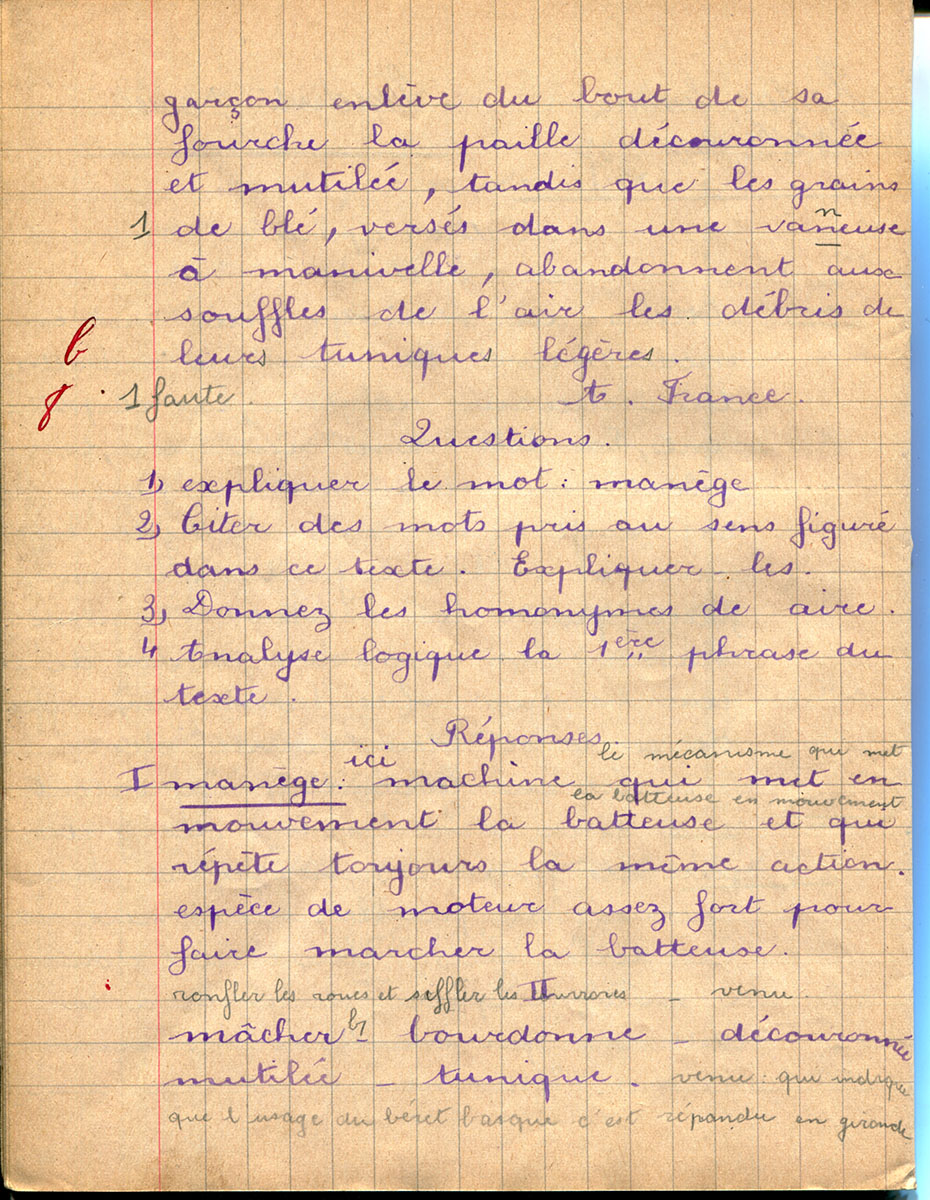 garçon enlève du bout de sa
fourche la paille découronnée
et mutilée, tandis que les grains
n
1 de blé, versés dans une vaneuse
à manivelle, abandonnent aux
souffles de l'air les débris de
leurs tuniques légères.
1 faute. A. France.
8
Questions.
1) expliquer le mot : manège
2) Citer des mots pris au sens figuré
dans ce texte. Expliquer-les.
3) Donnez les homonymes de aire.
4 Analyse logique la 1ère phrase du
texte.
Réponses
le mécanisme qui met
ici
I manège : machine qui met en
la batteuse en mouvement
mouvement la batteuse et qui
répète toujours la même action.
espèce de moteur assez fort pour
faire marcher la batteuse.
ronfler les roues et siffler les II - venu.
mâcher - bourdonne - découronnée
mutilée - tunique. venu : qui indique
que l'usage du béret basque s'est répandu en gironde